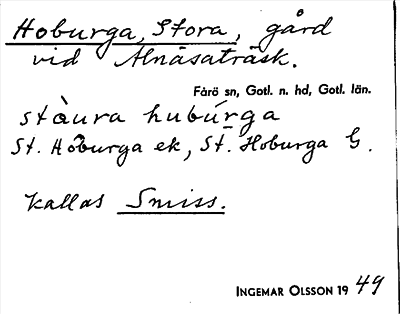 Hoburga, Stora, gård
vid Alnäsaträsk.
Fårö sn, Gotl. n. hd, Gotl. län.
stàura hubúrga
St. Hoburga ek, St. Hoburga G.
kallas Smiss.
INGEMAR OLSSON 1949